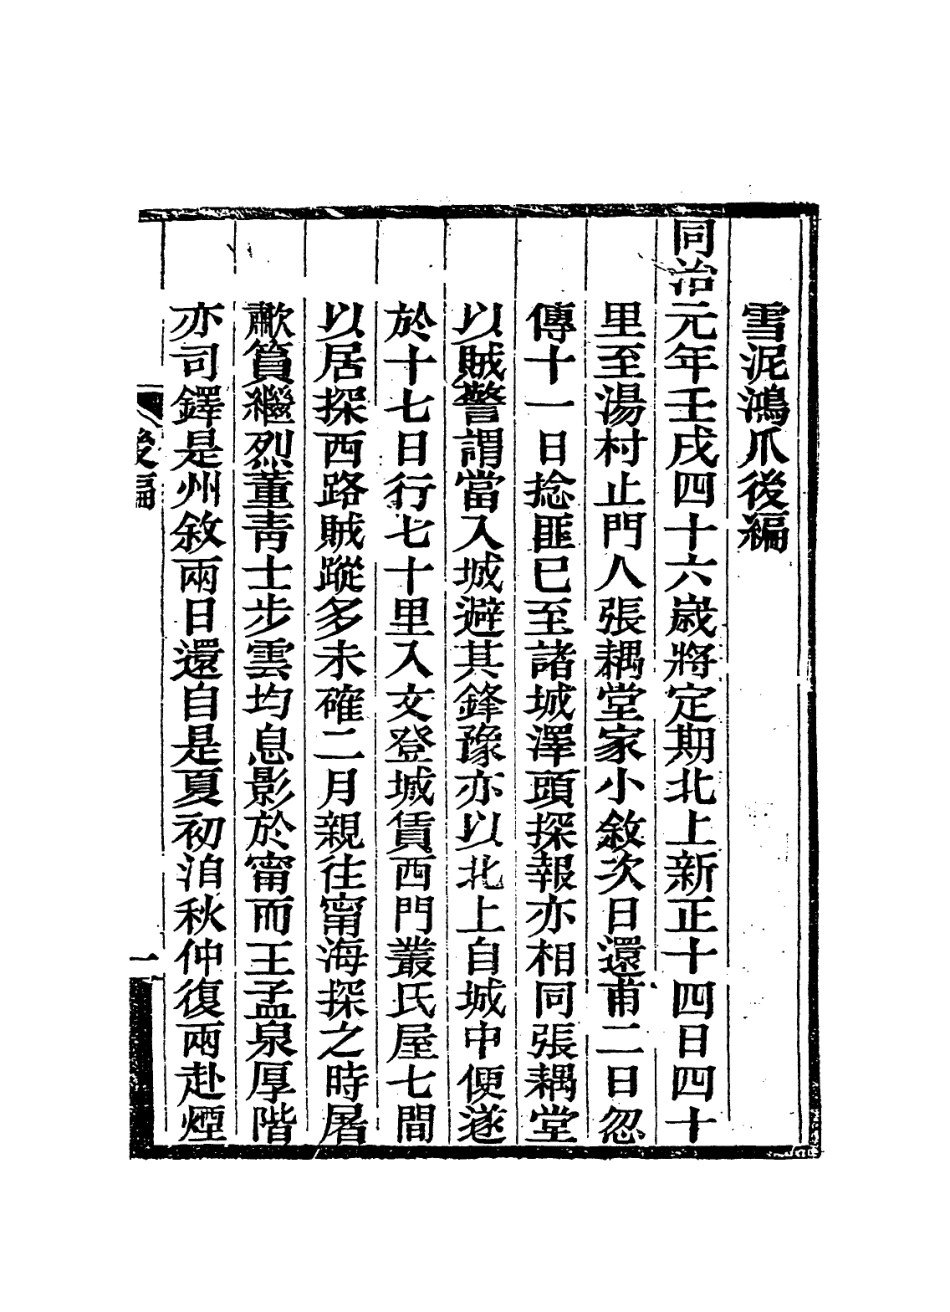 雪泥鴻爪後編
同治元年壬戌四十六歲將定期北上新正十四日四十
里至湯村止門人張耦堂家小敘次日還甫二日忽
傳十一日捻匪已至諸城澤頭探報亦相同張耦堂
以賊警謂當入城避其鋒豫亦以北上自城中便遂
於十七日行七十里入文登城賃西門叢氏屋七間
以居探西路賊蹤多未確二月親往甯海探之時屠
歗篔繼烈董青士步雲均息影於甯而王孟泉厚階
亦司鐸是州敘兩日還自是夏初洎秋仲復兩赴煙
後編
一